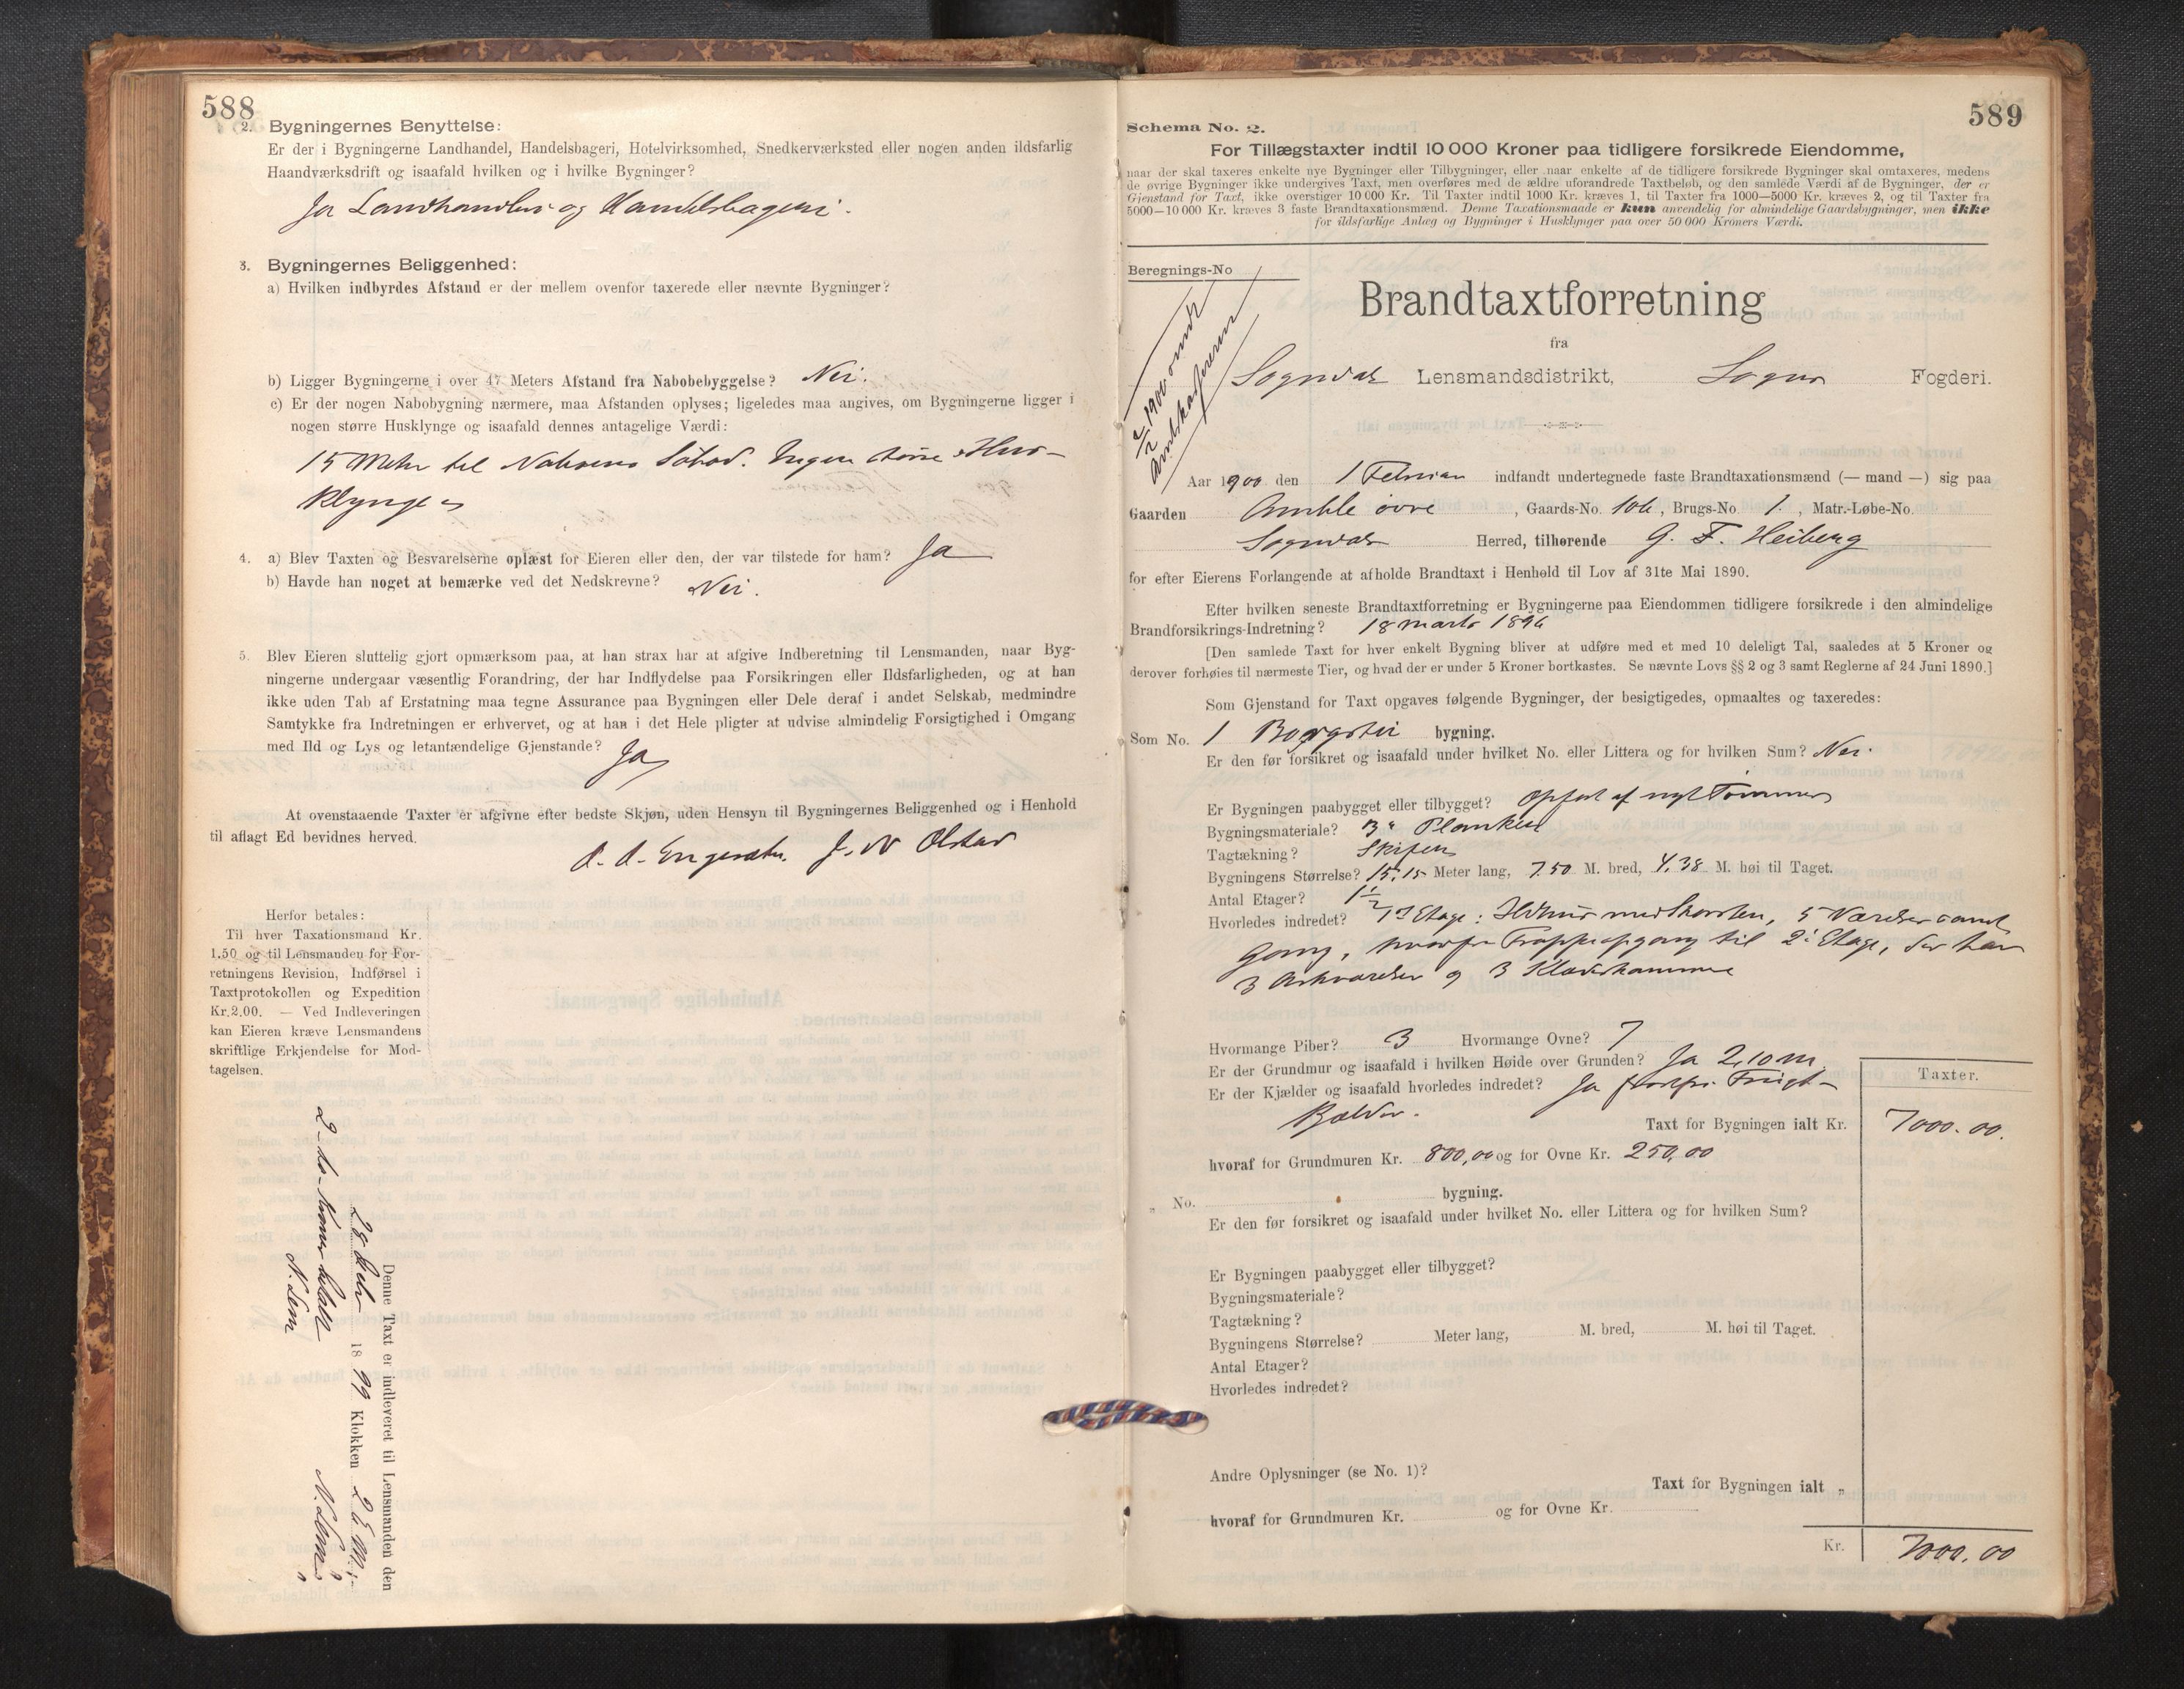 588
2. Bygningernes Benyttelse:
Er der i Bygningerne Landhandel, Handelsbageri, Hotelvirksomhed, Snedkerværksted eller nogen anden ildsfarlig
Haandværksdrift og isaafald hvilken og i hvilke Bygninger?
Ja Landhandleri og Handelsbageri.
3. Bygningernes Beliggenhed:
a) Hvilken indbyrdes Afstand er der mellem ovenfor taxerede eller nævnte Bygninger?
b) Ligger Bygningerne i over 47 Meters Afstand fra Nabobebyggelse? Nei.
c) Er der nogen Nabobygning nærmere, maa Afstanden oplyses; ligeledes maa angives, om Bygningerne ligger i
nogen større Husklynge og isaafald dennes antagelige Værdi:
15 Meter til Naboens Søbod. Ingen større Hus-
klynge
4. a) Blev Taxten og Besvarelserne oplæst for Eieren eller den, der var tilstede for ham? Ja
b) Havde han noget at bemærke ved det Nedskrevne? Nei.
5. Blev Eieren sluttelig gjort opmærksom paa, at han strax har at afgive Indberetning til Lensmanden, naar Byg-
ningerne undergaar væsentlig Forandring, der har Indflydelse paa Forsikringen eller Ildsfarligheden, og at han
ikke uden Tab af Erstatning maa tegne Assurance paa Bygningen eller Dele deraf i andet Selskab, medmindre
Samtykke fra Indretningen er erhvervet, og at han i det Hele pligter at udvise almindelig Forsigtighed i Omgang
med Ild og Lys og letantændelige Gjenstande? Ja
At ovenstaaende Taxter er afgivne efter bedste Skjøn, uden Hensyn til Bygningernes Beliggenhed og i Henhold
til aflagt Ed bevidnes herved.
J. N Olstad
Herfor betales:
Til hver Taxationsmand Kr.
1.50 og til Lensmanden for For-
retningens Revision, Indførsel i
Taxtprotokollen og Expedition
Kr.2.00. — Ved Indleveringen
kan Eieren kræve Lensmandens
skriftlige Erkjendelse for Mod-
tagelsen.
Denne Taxt er indleveret til Lensmanden den
1899 Klokken 2 E.M.
N. Lem
2 - to - Kroner betalt
N. Lem
589
Schema No. 2.
For Tillægstaxter indtil 10 000 Kroner paa tidligere forsikrede Eiendomme,
naar der skal taxeres enkelte nye Bygninger eller Tilbygninger, eller naar enkelte af de tidligere forsikrede Bygninger skal omtaxeres, medens
de øvrige Bygninger ikke undergives Taxt, men overføres med de ældre uforandrede Taxtbeløb, og den samlede Værdi af de Bygninger, der er
Gjenstand for Taxt, ikke overstiger 10 000 Kr. Til Taxter indtil 1000 Kr. kræves 1, til Taxter fra 1000—5000 Kr. kræves 2, og til Taxter fra
5000—10 000 Kr. kræves 3 faste Brandtaxationsmænd. Denne Taxationsmaade er kun anvendelig for almindelige Gaardsbygninger, men ikke
for ildsfarlige Anlæg og Bygninger i Husklynger paa over 50 000 Kroners Værdi.
Beregnings-No
2/2 1900 sendt
Amtskassereren
Brandtaxtforretning
fra
Sogndal Lensmandsdistrikt, Sogns Fogderi.
Aar 1900 den 1 Februar indfandt undertegnede faste Brandtaxationsmænd (— mand —) sig paa
Gaarden Amble øvre, Gaards-No. 106, Brugs-No. 1., Matr.-Løbe-No.
Sogndal Herred, tilhørende G. F. Heiberg
for efter Eierens Forlangende at afholde Brandtaxt i Henhold til Lov af 31te Mai 1890.
Efter hvilken seneste Brandtaxtforretning er Bygningerne paa Eiendommen tidligere forsikrede i den almindelige
Brandforsikrings-Indretning? 18 marts 1896
[Den samlede Taxt for hver enkelt Bygning bliver at udføre med et med 10 deleligt Tal, saaledes at 5 Kroner og
derover forhøies til nærmeste Tier, og hvad der er under 5 Kroner bortkastes. Se nævnte Lovs §§ 2 og 3 samt Reglerne af 24 Juni 1890.]
Som Gjenstand for Taxt opgaves følgende Bygninger, der besigtigedes, opmaaltes og taxeredes:
Som No. 1 bygning.
Er den før forsikret og isaafald under hvilket No. eller Littera og for hvilken Sum? Nei.
Er Bygningen paabygget eller tilbygget? Opført af nyt Tømmer
Bygningsmateriale? 3" Planker
Tagtækning? Skifer
Bygningens Størrelse? 15,15 Meter lang, 7.50 M. bred, 4,38 M. høi til Taget.
Antal Etager? 1 1/2
Hvorledes indredet? 1ste Etage: Ildhus med Skorsten, 5 Værelser samt
Gang, hvorfra Trappeopgang til 2. Etage, der har
3 Arkværelser og 3 Klædeskammere
Hvormange Piber? 3 Hvormange Ovne? 7
Er der Grundmur og isaafald i hvilken Høide over Grunden? Ja 2,10 m.
Er der Kjælder og isaafald hvorledes indredet? Ja
Taxter.
Taxt for Bygningen ialt Kr. 7000.00.
hvoraf for Grundmuren Kr. 800,00 og for Ovne Kr. 250,00
„ No. bygning.
Er den før forsikret og isaafald under hvilket No. eller Littera og for hvilken Sum?
Er Bygningen paabygget eller tilbygget?
Bygningsmateriale?
Tagtækning?
Bygningens Størrelse? Meter lang, M. bred, M. høi til Taget.
Antal Etager?
Hvorledes indredet?
Andre Oplysninger (se No. 1)?
Taxt for Bygningen ialt „
hvoraf for Grundmuren Kr. og for Ovne Kr.
Kr. 7000.00